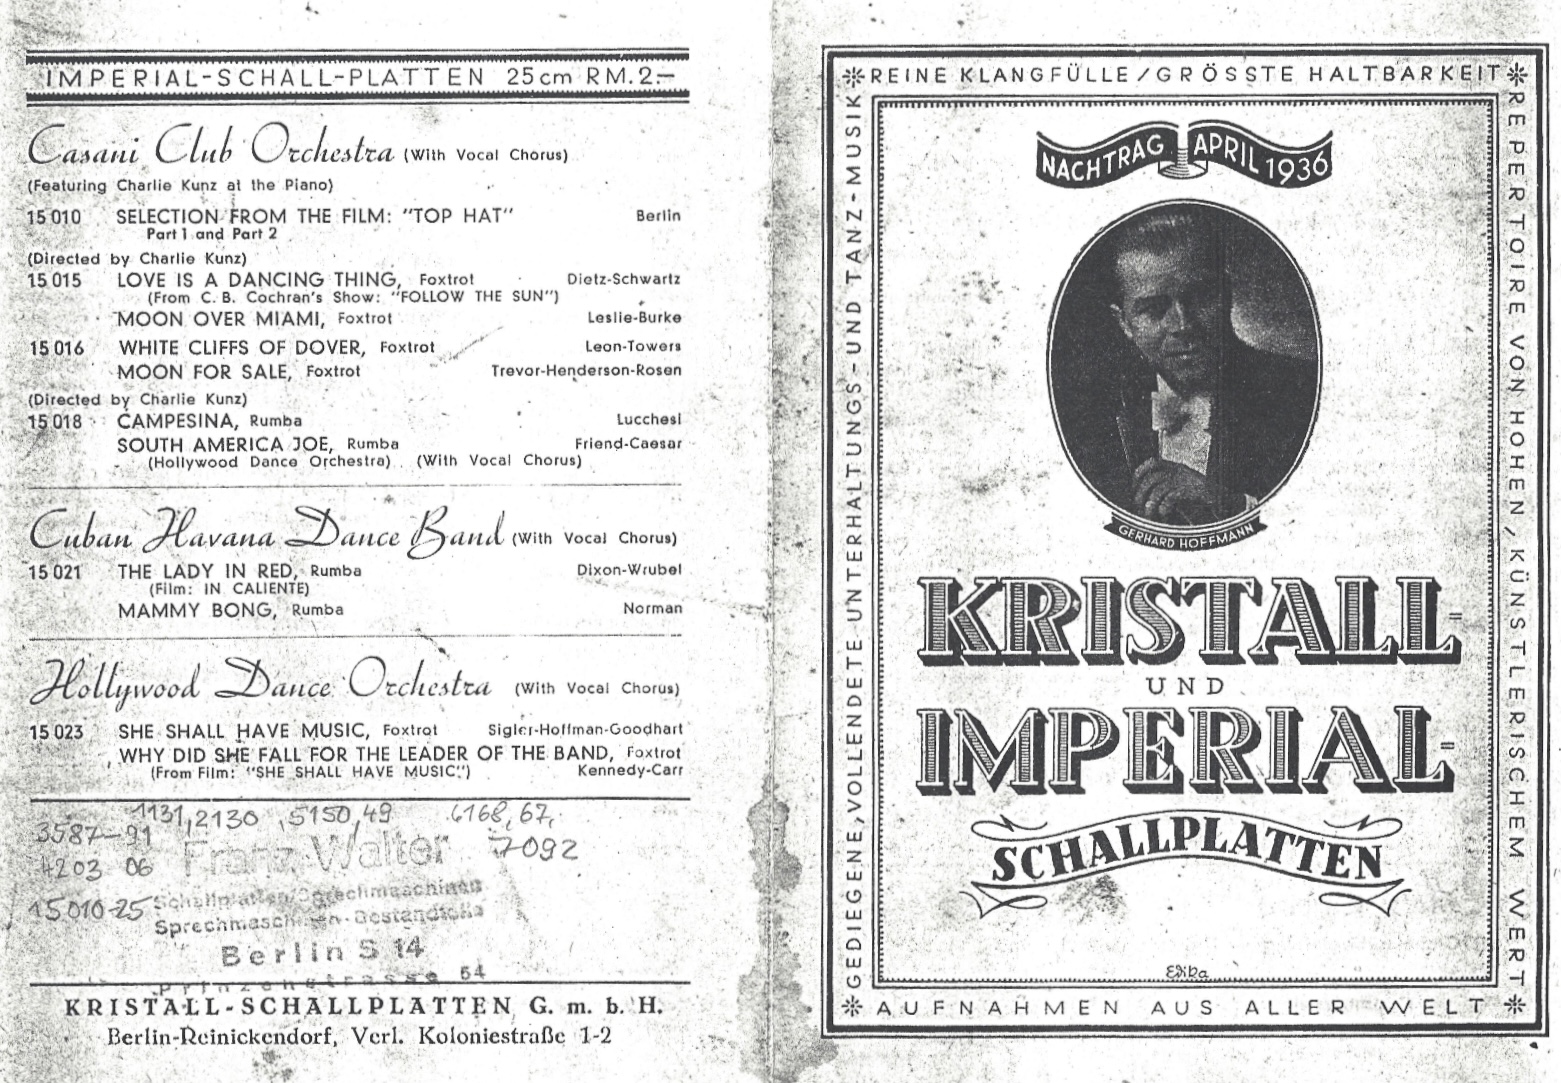 IMPERIAL-SCHALL-PLATTEN 25cm RM.2.—
Casani Club Orchestra (With Vocal Chorus)
(Featuring Charlie Kunz at the Piano)
15 010 SELECTION FROM THE FILM: "TOP HAT" Berlin
Part 1 and Part 2
(Directed by Charlie Kunz)
15 015 LOVE IS A DANCING THING, Foxtrot Dietz-Schwartz
(From C. B. Cochran's Show: "FOLLOW THE SUN")
MOON OVER MIAMI, Foxtrot Leslie-Burke
15 016 WHITE CLIFFS OF DOVER, Foxtrot Leon-Towers
MOON FOR SALE, Foxtrot Trevor-Henderson-Rosen
(Directed by Charlie Kunz)
15 018 CAMPESINA, Rumba Lucchesi
SOUTH AMERICA JOE, Rumba Friend-Caesar
(Hollywood Dance Orchestra) (With Vocal Chorus)
Cuban Havana Dance Band (With Vocal Chorus)
15 021 THE LADY IN RED, Rumba Dixon-Wrubel
(Film: IN CALIENTE)
MAMMY BONG, Rumba Norman
Hollywood Dance Orchestra (With Vocal Chorus)
15 023 SHE SHALL HAVE MUSIC, Foxtrot Sigler-Hoffman-Goodhart
WHY DID SHE FALL FOR THE LEADER OF THE BAND, Foxtrot
(From Film: "SHE SHALL HAVE MUSIC") Kennedy-Carr
1131, 2130, 5150, 49 6168, 67,
3587-91 7092
4203 06
15010-25
Franz Walter
Schallplatten/Sprechmaschinen
Sprechmaschinen-Bestandteile
Berlin S 14
Prinzenstrasse 64
KRISTALL-SCHALLPLATTEN G. m. b. H.
Berlin-Reinickendorf, Verl. Koloniestraße 1-2
REINE KLANGFÜLLE/GRÖSSTE HALTBARKEIT
REPERTOIRE VON HOHEN/KÜNSTLERISCHEM WERT
GEDIEGENE, VOLLENDETE UNTERHALTUNGS- UND TANZ-MUSIK
NACHTRAG APRIL 1936
GERHARD HOFFMANN
KRISTALL-
UND
IMPERIAL-
SCHALLPLATTEN
AUFNAHMEN AUS ALLER WELT